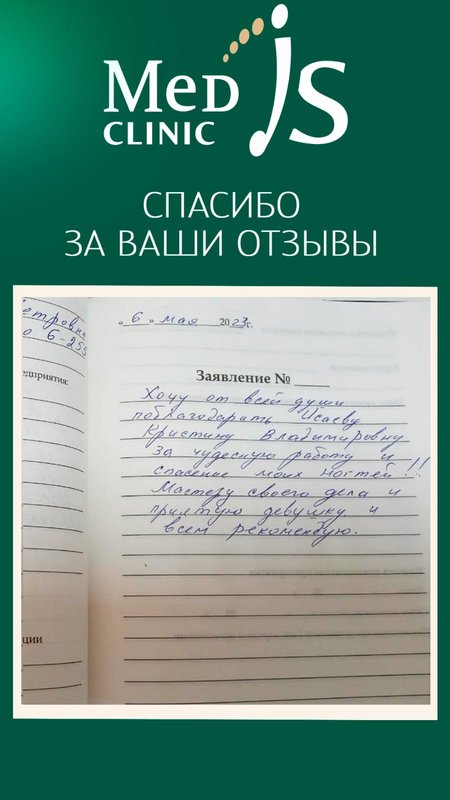 MeD JS
CLINIC
СПАСИБО
ЗА ВАШИ ОТЗЫВЫ
етровн
о 6-255
едприятия:
ции
« 6 » мая 2023г.
Заявление № ____
Хочу от всей души
поблагодарить Исаеву
Кристину Владимировну
за чудесную работу и
спасение моих ногтей!!!
Мастеру своего дела и
приятную девушку и
всем рекомендую.